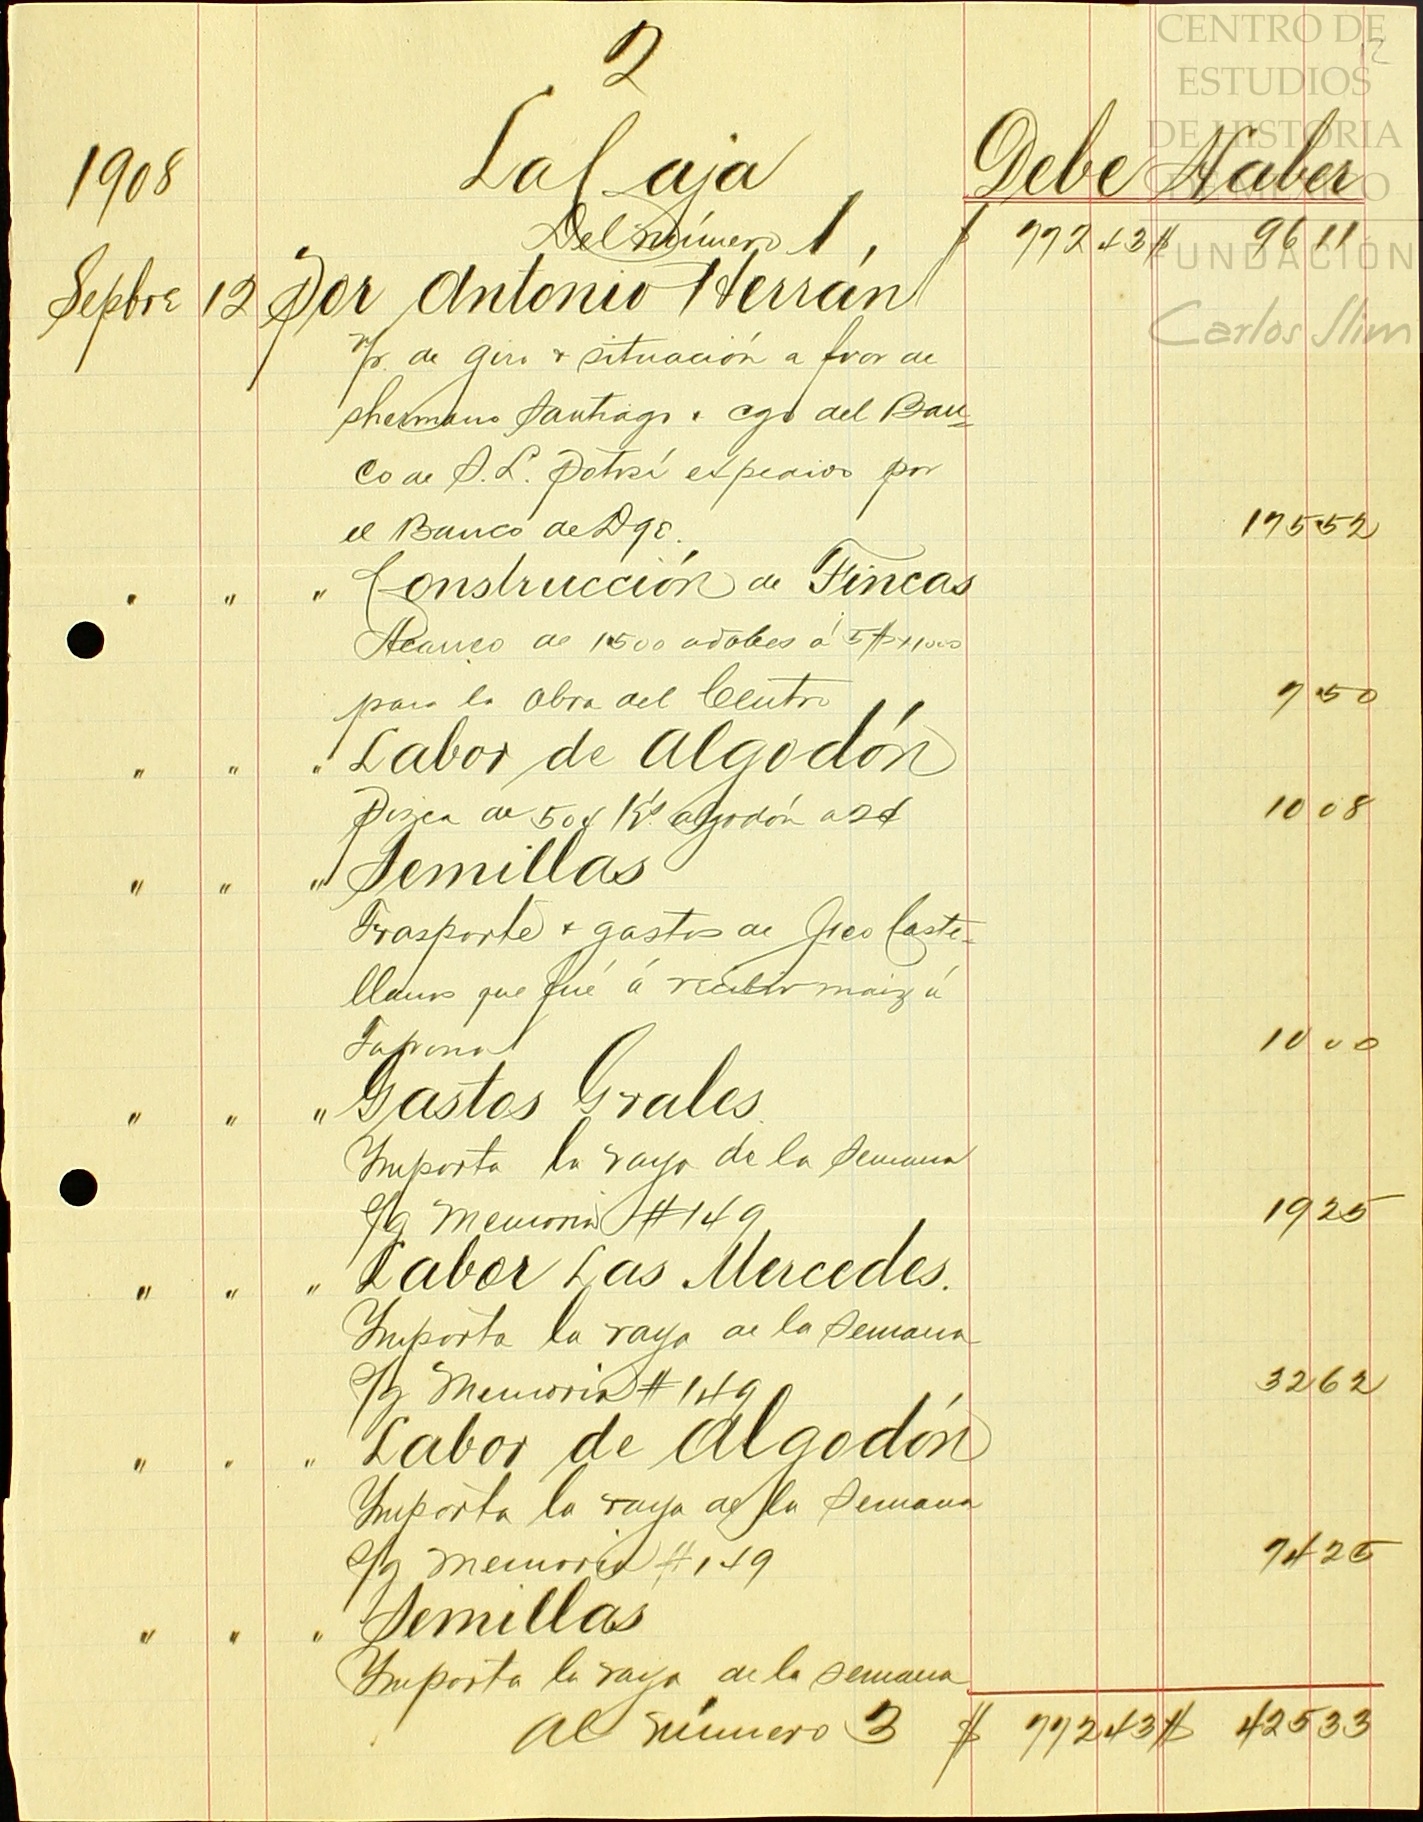 CENTRO DE
ESTUDIOS
DE HISTORIA
DE MÉXICO
FUNDACIÓN
Carlos Slim
12
2
1908 La Caja Debe Haber
Del número 1, $ 772 43 $ 96 11
Sepbre 12 Por Antonio Herrán
de giro y situación a fvor de
shermano Santiago y cgo del Ban-
co de S. L. Potosí expedido por
el Banco de Dgo. 175 52
" " " Construcción de Fincas
Acarreo de 1500 adobes á 5$
para la obra del Centro 7 50
" " " Labor de Algodón
Pizca de 504 Ks. algodón a 2¢ 10 08
" " " Semillas
Trasporte y gastos de Fco Caste-
llanos que fué á recibir maiz á
10 00
" " " Gastos Grales.
Importa la raya de la semana
s/g Memoria #149 19 25
" " " Labor Las Mercedes.
Importa la raya de la semana
s/g Memoria #149 32 62
" " " Labor de Algodón
Importa la raya de la semana
s/g Memoria #149 74 25
" " " Semillas
Importa la raya de la semana
Al número 3 $ 772 43 $ 425 33